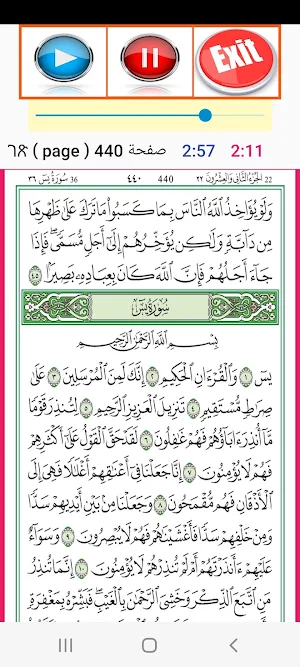 Exit
ገጽ ( page ) 440 صفحة 2:57 2:11
36 سُورَةُ يسٓ ٣٦ ٤٤٠ 440 الجُزْءُ الثَّانِي وَالعِشْرُونَ ٢٢ 22
وَلَوْ يُؤَاخِذُ ٱللَّهُ ٱلنَّاسَ بِمَا كَسَبُوا۟ مَا تَرَكَ عَلَىٰ ظَهْرِهَا
مِن دَآبَّةٍ وَلَٰكِن يُؤَخِّرُهُمْ إِلَىٰٓ أَجَلٍ مُّسَمًّى ۖ فَإِذَا
جَآءَ أَجَلُهُمْ فَإِنَّ ٱللَّهَ كَانَ بِعِبَادِهِۦ بَصِيرًۢا ٤٥
سُورَةُ يسٓ
بِسْمِ ٱللَّهِ ٱلرَّحْمَٰنِ ٱلرَّحِيمِ
يسٓ ١ وَٱلْقُرْءَانِ ٱلْحَكِيمِ ٢ إِنَّكَ لَمِنَ ٱلْمُرْسَلِينَ ٣ عَلَىٰ
صِرَٰطٍ مُّسْتَقِيمٍ ٤ تَنزِيلَ ٱلْعَزِيزِ ٱلرَّحِيمِ ٥ لِتُنذِرَ قَوْمًا
مَّآ أُنذِرَ ءَابَآؤُهُمْ فَهُمْ غَٰفِلُونَ ٦ لَقَدْ حَقَّ ٱلْقَوْلُ عَلَىٰٓ أَكْثَرِهِمْ
فَهُمْ لَا يُؤْمِنُونَ ٧ إِنَّا جَعَلْنَا فِىٓ أَعْنَٰقِهِمْ أَغْلَٰلًا فَهِىَ إِلَى
ٱلْأَذْقَانِ فَهُم مُّقْمَحُونَ ٨ وَجَعَلْنَا مِنۢ بَيْنِ أَيْدِيهِمْ سَدًّا
وَمِنْ خَلْفِهِمْ سَدًّا فَأَغْشَيْنَٰهُمْ فَهُمْ لَا يُبْصِرُونَ ٩ وَسَوَآءٌ
عَلَيْهِمْ ءَأَنذَرْتَهُمْ أَمْ لَمْ تُنذِرْهُمْ لَا يُؤْمِنُونَ ١٠ إِنَّمَا تُنذِرُ
مَنِ ٱتَّبَعَ ٱلذِّكْرَ وَخَشِىَ ٱلرَّحْمَٰنَ بِٱلْغَيْبِ ۖ فَبَشِّرْهُ بِمَغْفِرَةٍ